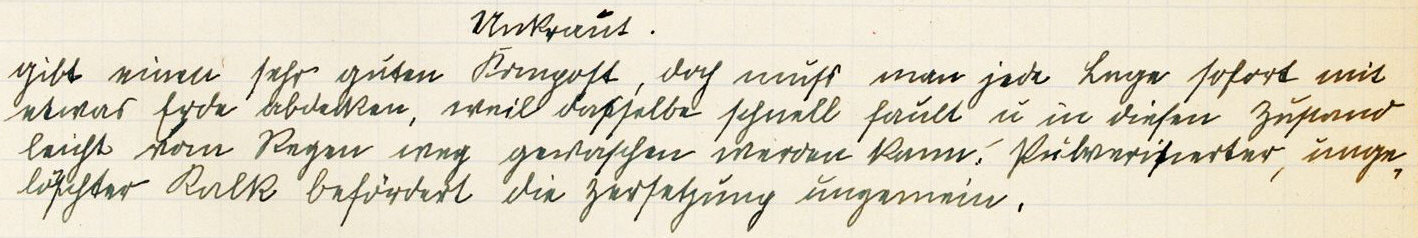 Unkraut.
gibt einen sehr guten Kompost, doch muß man jede Lage sofort mit
etwas Erde abdecken, weil dasselbe schnell fault u in diesen Zustand
leicht vom Regen weg gewaschen werden kann. Pulverisierter, unge-
löschter Kalk befördert die Zersetzung ungemein.